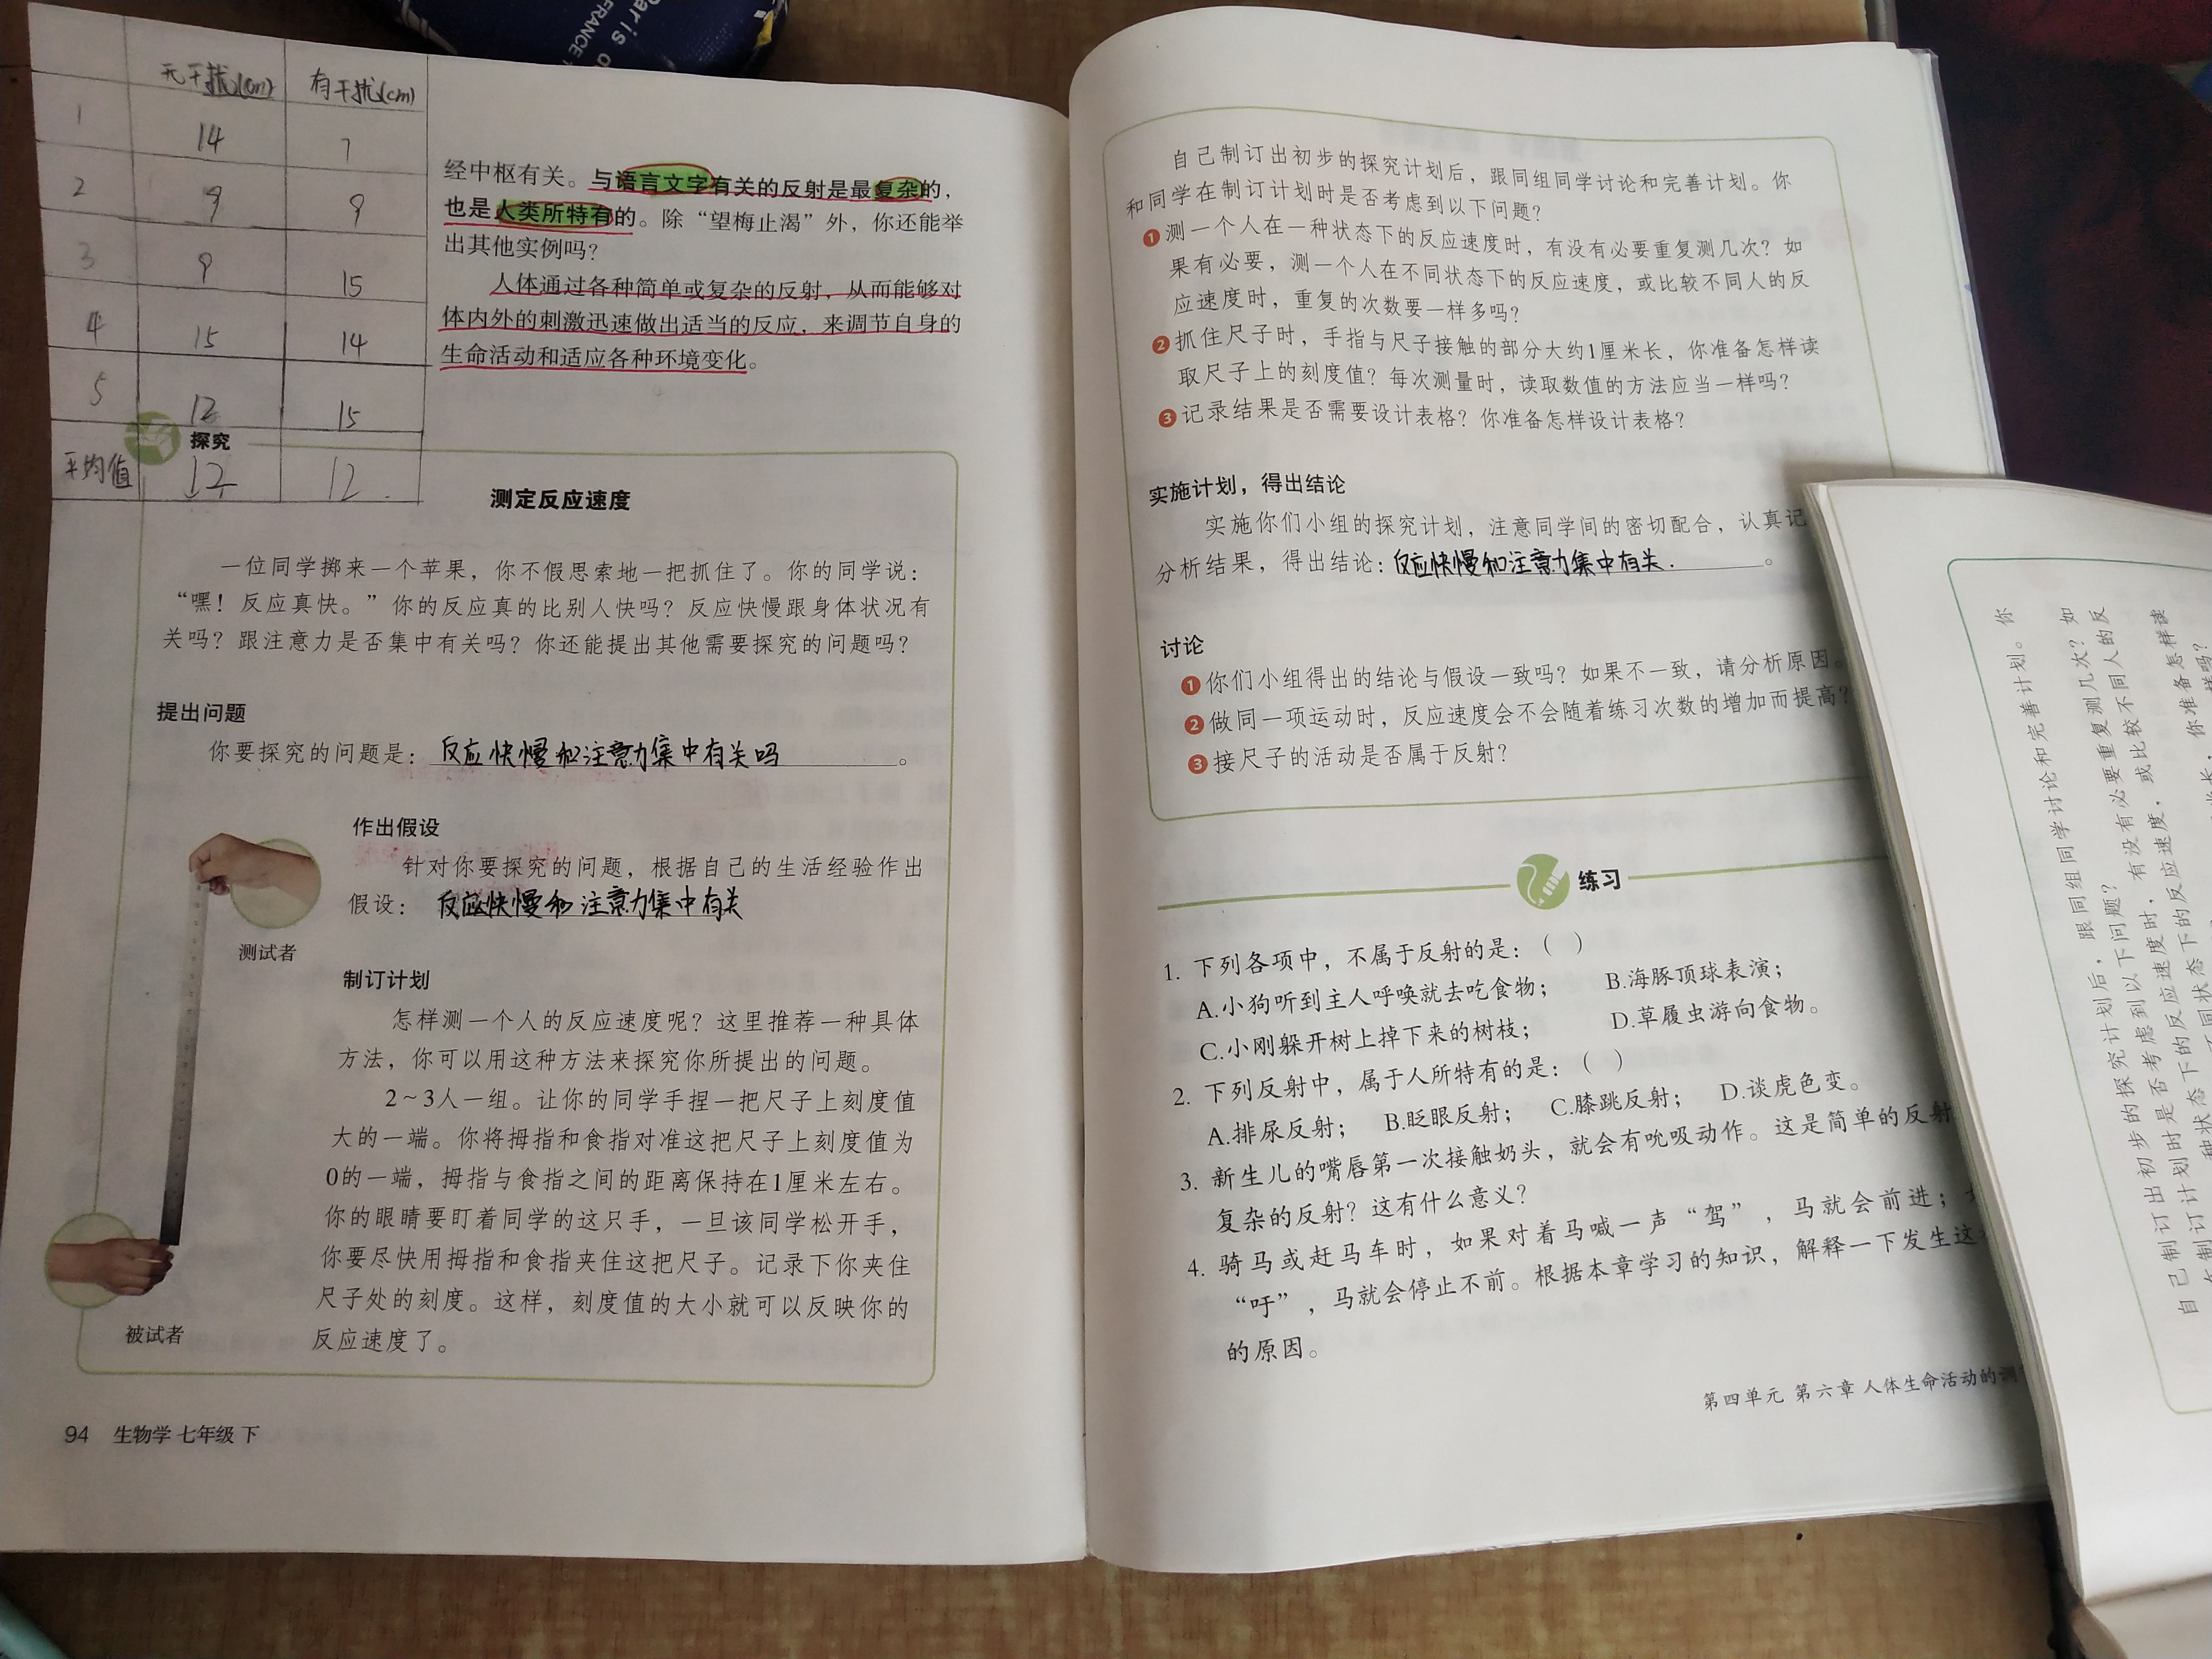 Paris
FRANCE
无干扰(cm) 有干扰(cm)
1 14 7
2 9 9
3 9 15
4 15 14
5 12 15
平均值 12 12
经中枢有关。与语言文字有关的反射是最复杂的，
也是人类所特有的。除“望梅止渴”外，你还能举
出其他实例吗？
人体通过各种简单或复杂的反射，从而能够对
体内外的刺激迅速做出适当的反应，来调节自身的
生命活动和适应各种环境变化。
探究
测定反应速度
一位同学掷来一个苹果，你不假思索地一把抓住了。你的同学说：
“嘿！反应真快。”你的反应真的比别人快吗？反应快慢跟身体状况有
关吗？跟注意力是否集中有关吗？你还能提出其他需要探究的问题吗？
提出问题
你要探究的问题是：反应快慢和注意力集中有关吗。
作出假设
针对你要探究的问题，根据自己的生活经验作出
假设：反应快慢和注意力集中有关
测试者
制订计划
怎样测一个人的反应速度呢？这里推荐一种具体
方法，你可以用这种方法来探究你所提出的问题。
2～3人一组。让你的同学手捏一把尺子上刻度值
大的一端。你将拇指和食指对准这把尺子上刻度值为
0的一端，拇指与食指之间的距离保持在1厘米左右。
你的眼睛要盯着同学的这只手，一旦该同学松开手，
你要尽快用拇指和食指夹住这把尺子。记录下你夹住
尺子处的刻度。这样，刻度值的大小就可以反映你的
反应速度了。
被试者
94 生物学 七年级 下
自己制订出初步的探究计划后，跟同组同学讨论和完善计划。你
和同学在制订计划时是否考虑到以下问题？
1 测一个人在一种状态下的反应速度时，有没有必要重复测几次？如
果有必要，测一个人在不同状态下的反应速度，或比较不同人的反
应速度时，重复的次数要一样多吗？
2 抓住尺子时，手指与尺子接触的部分大约1厘米长，你准备怎样读
取尺子上的刻度值？每次测量时，读取数值的方法应当一样吗？
3 记录结果是否需要设计表格？你准备怎样设计表格？
实施计划，得出结论
实施你们小组的探究计划，注意同学间的密切配合，认真记
分析结果，得出结论：反应快慢和注意力集中有关.。
讨论
1 你们小组得出的结论与假设一致吗？如果不一致，请分析原因。
2 做同一项运动时，反应速度会不会随着练习次数的增加而提高？
3 接尺子的活动是否属于反射？
练习
1. 下列各项中，不属于反射的是：（ ）
A.小狗听到主人呼唤就去吃食物； B.海豚顶球表演；
C.小刚躲开树上掉下来的树枝； D.草履虫游向食物。
2. 下列反射中，属于人所特有的是：（ ）
A.排尿反射； B.眨眼反射； C.膝跳反射； D.谈虎色变。
3. 新生儿的嘴唇第一次接触奶头，就会有吮吸动作。这是简单的反射
复杂的反射？这有什么意义？
4. 骑马或赶马车时，如果对着马喊一声“驾”，马就会前进；
“吁”，马就会停止不前。根据本章学习的知识，解释一下发生这
的原因。
第四单元 第六章 人体生命活动的调
自己制订出初步的探究计划后，跟同组同学讨论和完善计划。你
制订计划时是否考虑到以下问题？
种状态下的反应速度时，有没有必要重复测几次？如
不同状态下的反应速度，或比较不同人的反
你准备怎样读
样吗？